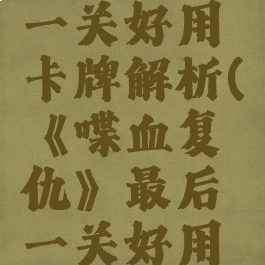 一关好用
卡牌解析(
《喋血复
仇》最后
一关好用